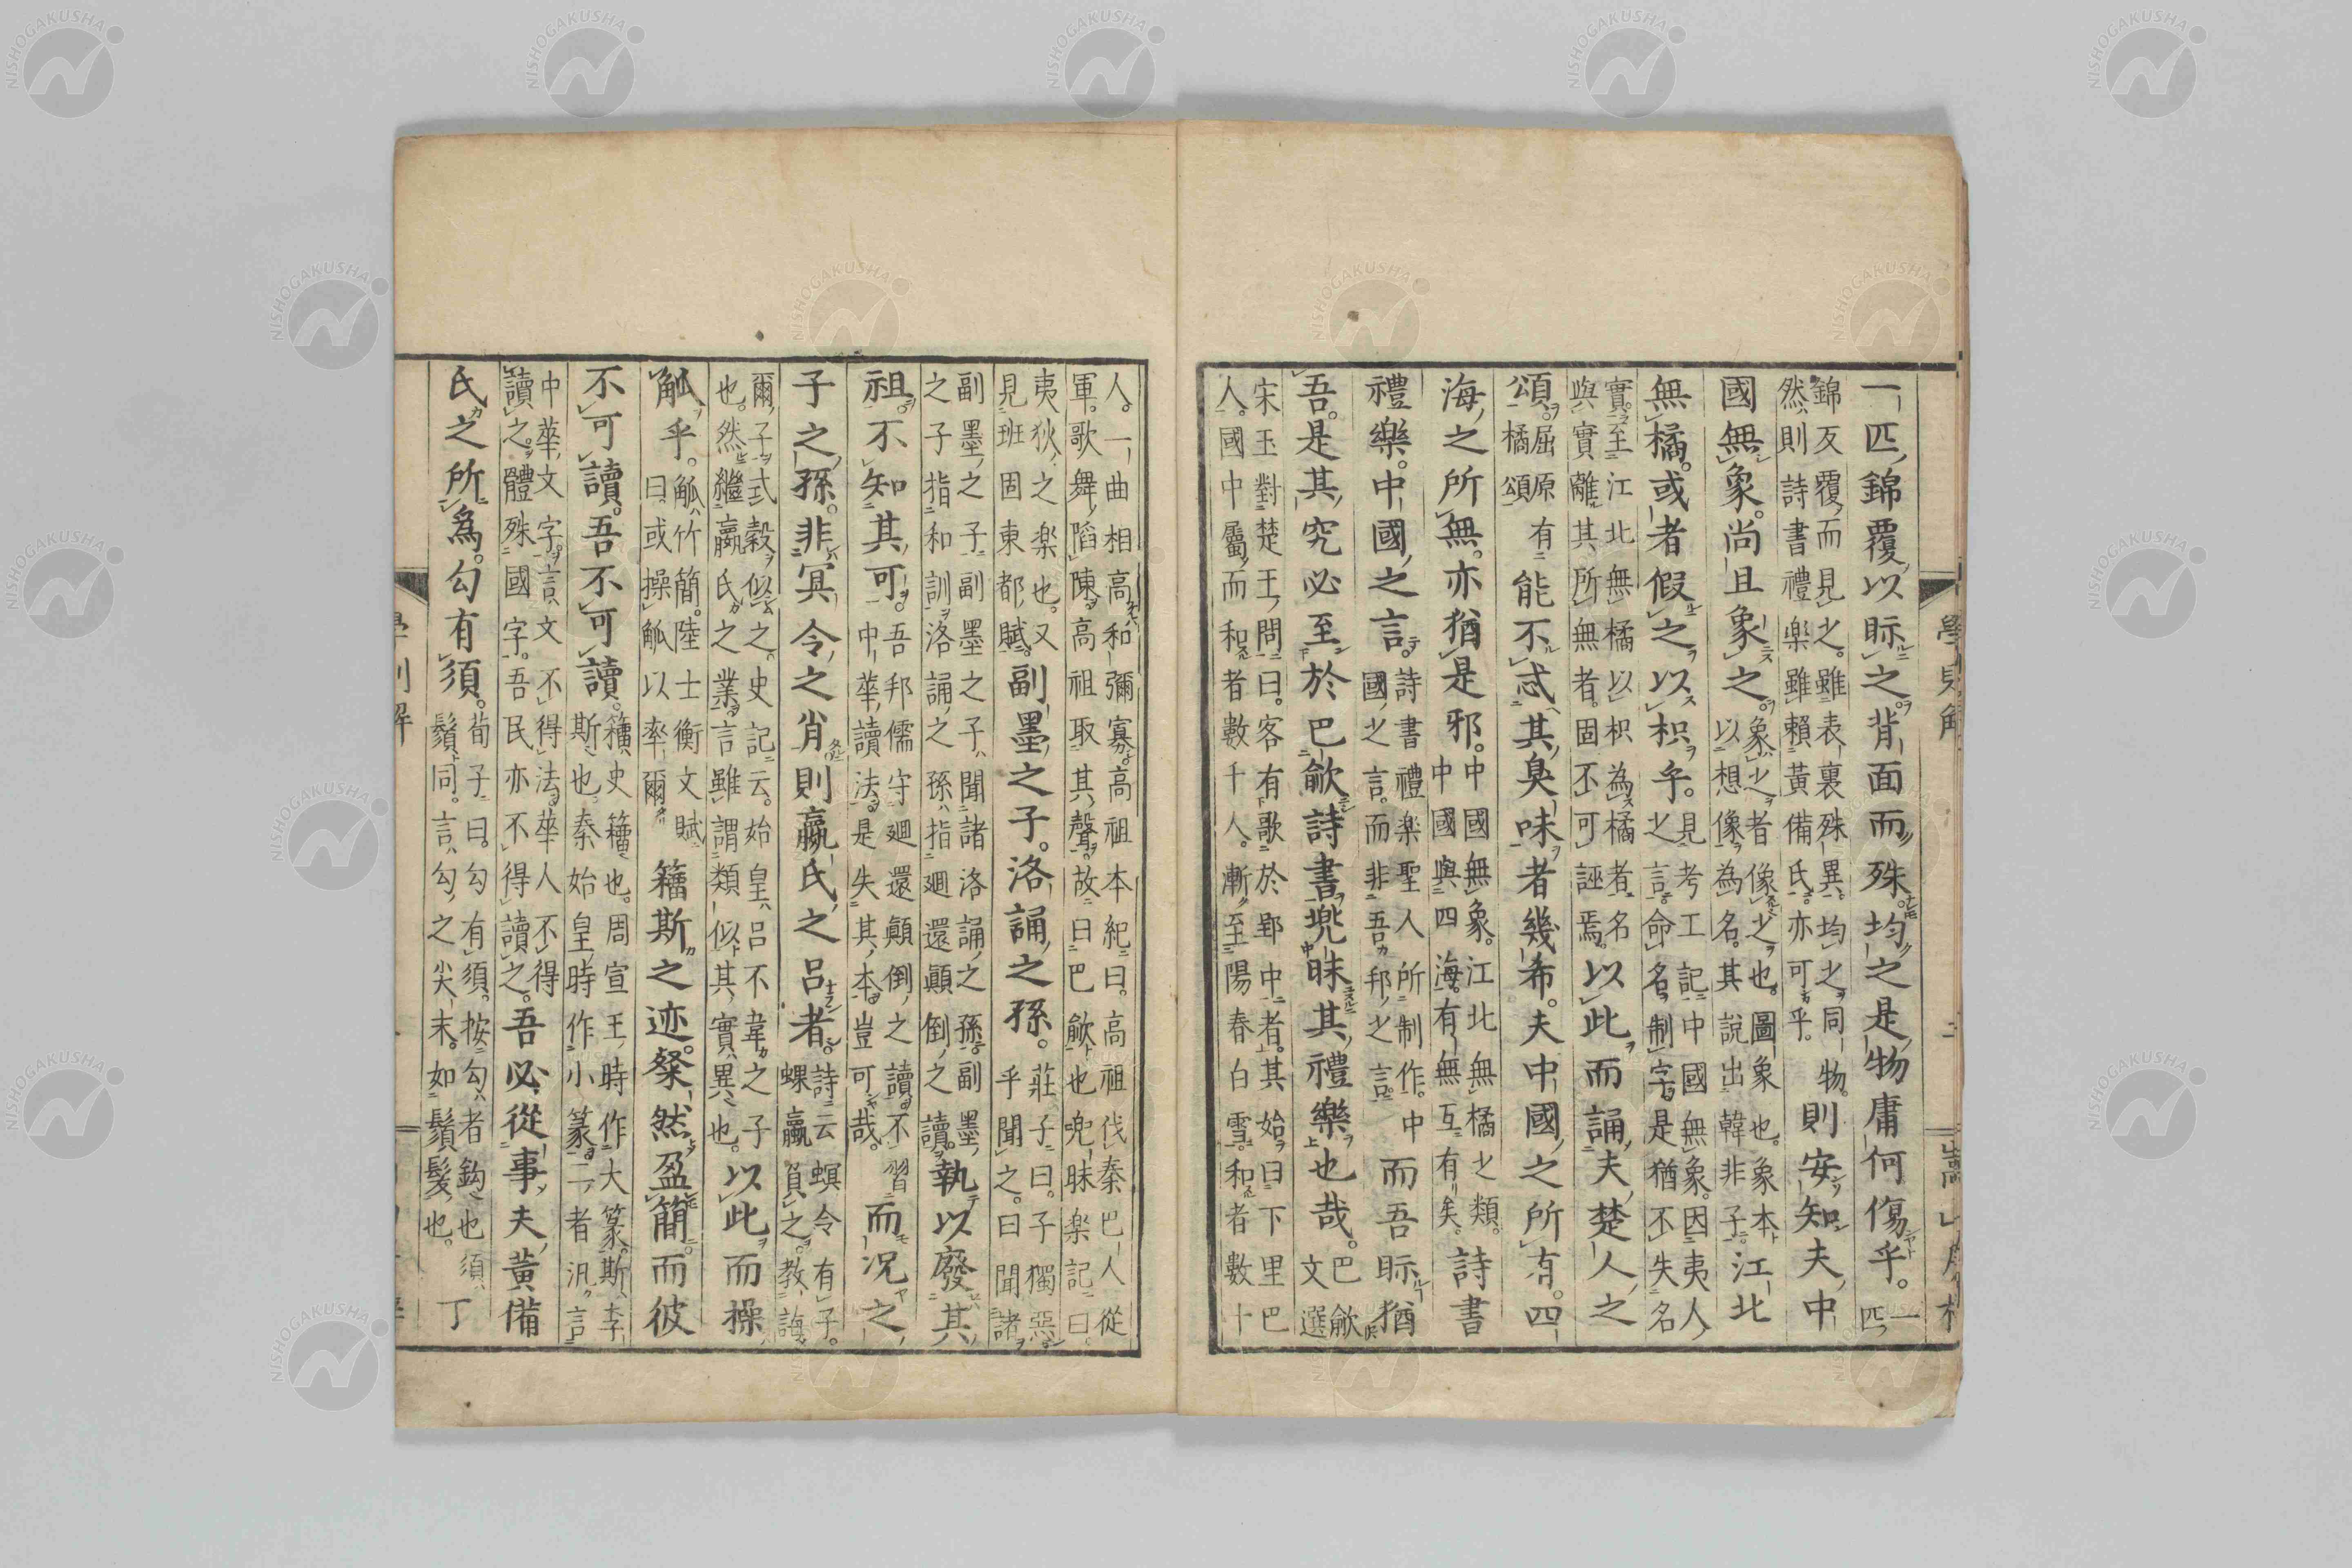 一匹錦覆以眎之。背面而殊。均之是物庸何傷乎。一匹
錦反覆而見之。雖表裏殊異。均之同物。
然則詩書禮楽雖賴黃備氏。亦可乎。
則安知夫中
國無象。尚且象之。
象之者像之也。圖象也。象本
以想像為名。其說出韓非子。
江北
無橘。或者假之以枳乎。
見考工記。中國無象。因夷人
之言。命名制字。是猶不失名
實。至江北無橘以枳為橘者。名
與實離。其所無者。固不可誣焉。
以此而誦夫楚人之
頌。
屈原有
橘頌
能不忒其臭味者幾希。夫中國之所有。四
海之所無。亦猶是邪。
中國無象。江北無橘之類。
中國與四海。有無互有矣。
詩書
禮樂。中國之言。
詩書禮楽聖人所制作。中
國之言。而非吾邦之言。
而吾眎猶
吾。是其究必至於巴歈詩書兜昧其禮樂也哉。
巴歈
文選
宋玉對楚王問曰。客有歌於郢中者。其始曰下里巴
人。國中屬而和者數千人。漸至陽春白雪。和者數十
人。一曲相高和彌寡。高祖本紀曰。高祖伐秦巴人從
軍。歌舞陷陳高祖取其聲。故曰巴歈也兜昧楽記曰。
夷狄之楽也。又
見班固東都賦。
副墨之子。洛誦之孫。
莊子曰。子獨惡
乎聞之。曰聞諸
副墨之子。副墨之子。聞諸洛誦之孫。副墨
之子指和訓。洛誦之孫指廻還顛倒之讀。
執以廢其
祖。不知其可。
吾邦儒守廻還顛倒之讀。不習
中華讀法。是失其本。豈可哉。
而況之
子之孫。非冥令之肖。則嬴氏之呂者。
詩云螟令有子。
蜾蠃負之。教誨
爾子式穀似之。史記云。始皇呂不韋之子
也。然繼嬴氏之業。言雖謂類似其實異也。
以此而操
觚乎。
觚竹簡。陸士衡文賦
曰。或操觚以率爾
籒斯之迹粲然盈簡。而彼
不可讀。吾不可讀。
籒史籒也。周宣王時作大篆。斯李
斯也。秦始皇時作小篆。二者汎言
中華文字。言文不得法。華人不得
讀之。體殊國字。吾民亦不得讀之。
吾必從事夫黃備
氏之所為。勾有須。
荀子曰。勾有須。按勾者鈎也須
鬚同。言勾之尖末。如鬚髮也。
丁